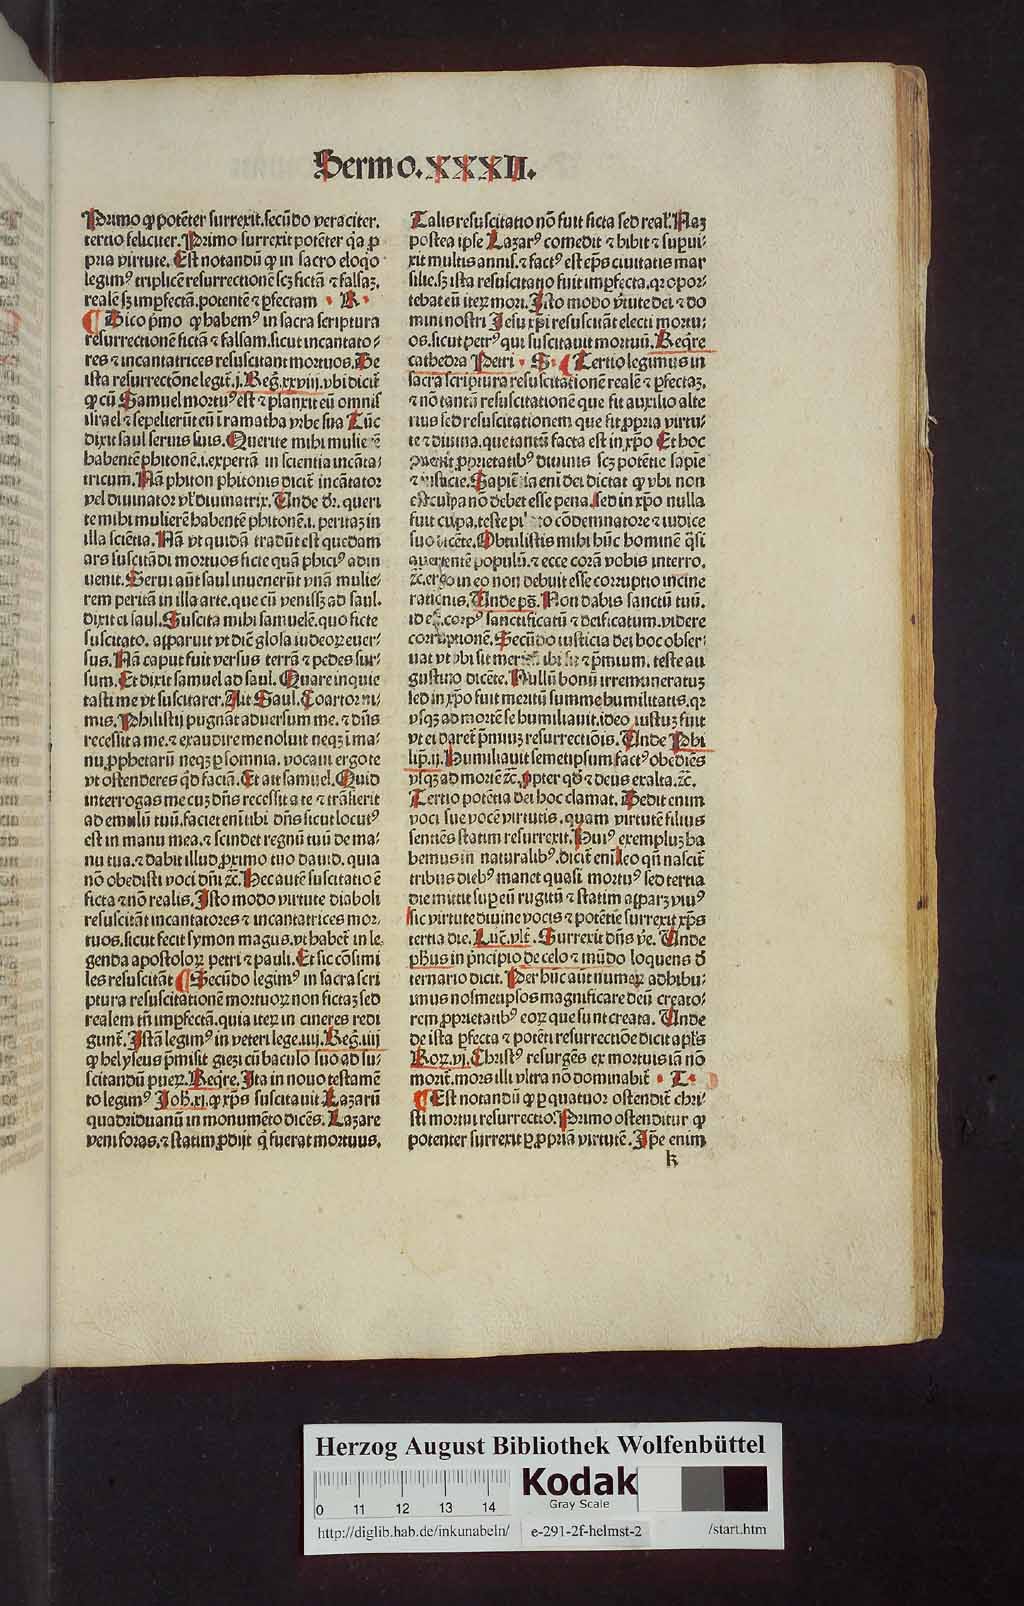 Sermo.XXXII.
Primo ꝙ potēter surrexit.secūdo veraciter.
tertio feliciter.Primo surrexit potēter q̄a ꝓ
pria virtute. Est notandū ꝙ in sacro eloq̄o
legimꝰ triplicē resurrectionē scꝫ fictā ⁊ falsaꝫ.
realē sꝫ imꝑfectā.potentē ⁊ ꝑfectam · R ·
¶ Dico pͥmo ꝙ habemꝰ in sacra scriptura
resurrectionē fictā ⁊ falsam.sicut incantato⸗
res ⁊ incantatrices resuscitant mortuos.De
ista resurrectōne legit̄.j.Reg̃.xxviij.vbi dicit̄
ꝙ cū Samuel mortuꝰ est ⁊ planxit eū omnis
israel ⁊ sepelierūt eū ī ramatha vrbe sua Tūc
dixit saul seruis suis.Querite mihi mulierē
habentē phitonē.i.expertā in scientia incāta⸗
tricum.Nā phiton phitonis dicit̄ incātator
vel diuinator vl̓ diuinatrix.Unde dr̄. queri
te mihi mulierē habentē phitonē.i. peritaꝫ in
illa sciētia.Nā vt quidā tradūt est quedam
ars suscitādi mortuos ficte quā phiciꝰ adin
uenit.Serui aūt saul inuenerūt vnā mulie⸗
rem peritā in illa arte.que cū venissꝫ ad saul.
dixit ei saul.Suscita mihi samuelē.quo ficte
suscitato. apparuit vt diē glosa iudeoꝝ euer⸗
sus.Nā caput fuit versus terrā ⁊ pedes sur⸗
sum.Et dixit samuel ad saul. Quare inquie
tasti me vt suscitarer.Ait Saul.Coartor ni⸗
mis.Philistij pugnāt aduersum me.⁊ dn̄s
recessit a me.⁊ exaudire me noluit neqꝫ ī ma⸗
nu ꝓphetarū neqꝫ ꝑ somnia. vocaui ergo te
vt ostenderes qͥd faciā.Et ait samuel.Quid
interrogas me cuꝫ dn̄s recessit a te ⁊ trāsierit
ad emulū tuū.faciet eni tibi dn̄s sicut locutꝰ
est in manu mea.⁊ scindet regnū tuū de ma⸗
nu tua.⁊ dabit illud ꝓximo tuo dauid. quia
nō obedisti voci dn̄i ⁊c̄.Hec autē suscitatio ē
ficta ⁊ nō realis.Isto modo virtute diaboli
resuscitāt incantatores ⁊ incantatrices mor⸗
tuos.sicut fecit symon magus.vt habet̄ in le⸗
genda apostoloꝝ petri ⁊ pauli.Et sic cōsimi
les resuscitāt ¶ Secūdo legimꝰ in sacra scri
ptura resuscitationē mortuoꝝ non fictaꝫ sed
realem tn̄ imꝑfectā.quia iteꝝ in cineres redi
gunt̄.Istā legimꝰ in veteri lege.iiij.Reg̃.iiij
ꝙ helyseus p̄misit giezi cū baculo suo ad su⸗
scitandū pueꝝ.Reqͥre.Ita in nouo testamē
to legimꝰ Joh̄.xj.ꝙ xp̄s suscitauit Lazarū
quadriduanū in monumēto dicēs. Lazare
veni foras.⁊ statim ꝓdijt qͥ fuerat mortuus.
Talis resuscitatio nō fuit ficta sed real̓.Naꝫ
postea ipse Lazarꝰ comedit ⁊ bibit ⁊ supui⸗
xit multis annis.⁊ factꝰ est ep̄s ciuitatis mar
silie.sꝫ ista resuscitatio fuit imꝑfecta.qꝛ opor⸗
tebat eū iteꝝ mori.Isto modo v̓tute dei ⁊ do
mini nostri Jesu xp̄i resuscitāt electi mortu⸗
os.sicut petrꝰ qui suscitauit mortuū.Reqͥre
cathedra Petri · S · ¶ Tertio legimus in
sacra scriptura resuscitationē realē ⁊ ꝑfectaꝫ.
⁊ nō tantū resuscitationē que fit auxilio alte
rius sed resuscitationem que fit ꝓpria virtu⸗
te ⁊ diuina.que tantū facta est in xp̄o Et hoc
ꝓprietatibꝰ diuinis scꝫ potētie sapiē
eni dei dictat ꝙ vbi non
est culpa nō debet esse pena.sed in xp̄o nulla
fuit culpa.teste cōdemnatore ⁊ iudice
suo dicēte.Obtulistis mihi hūc hominē q̄si
auertentē populū.⁊ ecce corā vobis interro.
⁊c̄.ergo in eo non debuit esse corruptio incine
rationis.Unde ps̄.Non dabis sanctū tuū.
id est.corpꝰ sanctificatū ⁊ deificatum.videre
corruptionē.Secūdo iusticia dei hoc obser⸗
uat vt vbi sit ibi sit ⁊ p̄mium. teste au
gustino dicēte.Nullū bonū irremuneratuꝫ
sed in xp̄o fuit meritū summe humilitatis.qꝛ
vsqꝫ ad mortē se humiliauit.ideo iustuꝫ fuit
vt ei daret̄ p̄miuꝫ resurrectiōis.Unde Phi
lip̄.ij.Humiliauit semetipsum factꝰ obediēs
vsqꝫ ad mortē ⁊c̄.ꝓpter qd̓ ⁊ deus exalta.⁊c̄.
Tertio potētia dei hoc clamat. Dedit enim
voci sue vocē virtutis.quam virtutē filius
sentiēs statim resurrexit.Huiꝰ exempluꝫ ha
bemus in naturalibꝰ.dicit̄ eni leo qn̄ nascit̄
tribus diebꝰ manet quasi mortuꝰ sed tertia
die mittit suꝑ eū rugitū ⁊ statim apparꝫ viuꝰ
sic virtute diuine vocis ⁊ potētie surrexit xp̄s
tertia die.Luc̄.vlt̄.Surrexit dn̄s v̓e. Unde
ph̄us in p̓ncipio de celo ⁊ mūdo loquens d̓
ternario dicit.Per hūc aūt numeꝝ adhibu⸗
imus nosmetipsos magnificare deū creato⸗
rem ꝓprietatibꝰ eoꝝ que sunt creata. Unde
de ista ꝑfecta ⁊ potēti resurrectiōe dicit apl̓s
Roꝝ.vj.Christꝰ resurgēs ex mortuis iā nō
morit̄.mors illi vltra nō dominabit̄ · T ·
¶ Est notandū ꝙ ꝑ quatuor ostendit̄ chri⸗
sti mortui resurrectio.Primo ostenditur ꝙ
potenter surrexit ꝑ ꝓpriā virtutē.Ip̄e enim
k
Herzog August Bibliothek Wolfenbüttel
0 11 12 13 14
Kodak
Gray Scale
http://diglib.hab.de/inkunabeln/ e-291-2f-helmst-2 /start.htm